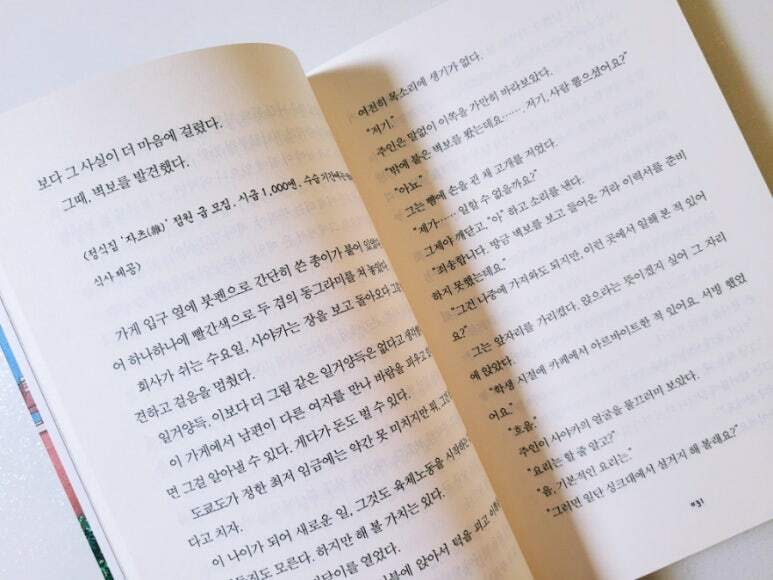 보다 그 사실이 더 마음에 걸렸다.
그때, 벽보를 발견했다.
〈정식집 '자츠(雑)' 점원 급 모집. 시급 1,000엔. 수습
식사 제공〉
가게 입구 옆에 붓펜으로 간단히 쓴 종이가 붙어 있었
어 하나하나에 빨간색으로 두 겹의 동그라미를 쳐 놓았다.
회사가 쉬는 수요일, 사야카는 장을 보고 돌아오다 그
견하고 걸음을 멈췄다.
일거양득, 이보다 더 그림 같은 일거양득은 없다고 생각
이 가게에서 남편이 다른 여자를 만나 바람을 피우고 있
면 그걸 알아낼 수 있다. 게다가 돈도 벌 수 있다.
도쿄도가 정한 최저 임금에는 약간 못 미치지만 뭐,
다고 치자.
이 나이가 되어 새로운 일, 그것도 육체노동을 시작하
모른다. 하지만 해 볼 가치는 있다.
미닫이를 열었다.
앉아서 턱을 괴고 이쪽
여전히 목소리에 생기가 없다.
"저기."
주인은 말없이 이쪽을 가만히 바라보았다.
"밖에 붙은 벽보를 봤는데요……. 저기, 사람 뽑으셨어요?"
"아뇨."
그는 뺨에 손을 괸 채 고개를 저었다.
"제가…… 일할 수 없을까요?"
그제야 깨닫고, '아' 하고 소리를 낸다.
"죄송합니다. 방금 벽보를 보고 들어온 거라 이력서를 준비
하지 못했는데요."
"그건 나중에 가져와도 되지만, 이런 곳에서 일해 본 적 있어
요?"
그는 앞자리를 가리켰다. 앉으라는 뜻이겠지 싶어 그 자리
에 앉았다.
"학생 시절에 카페에서 아르바이트한 적 있어요. 서빙 했었
어요."
"흐음."
주인이 사야카의 얼굴을 물끄러미 보았다.
"요리는 할 줄 알고?"
"음, 기본적인 요리는."
"그러면 일단 싱크대에서 설거지 해 볼래요?"
31